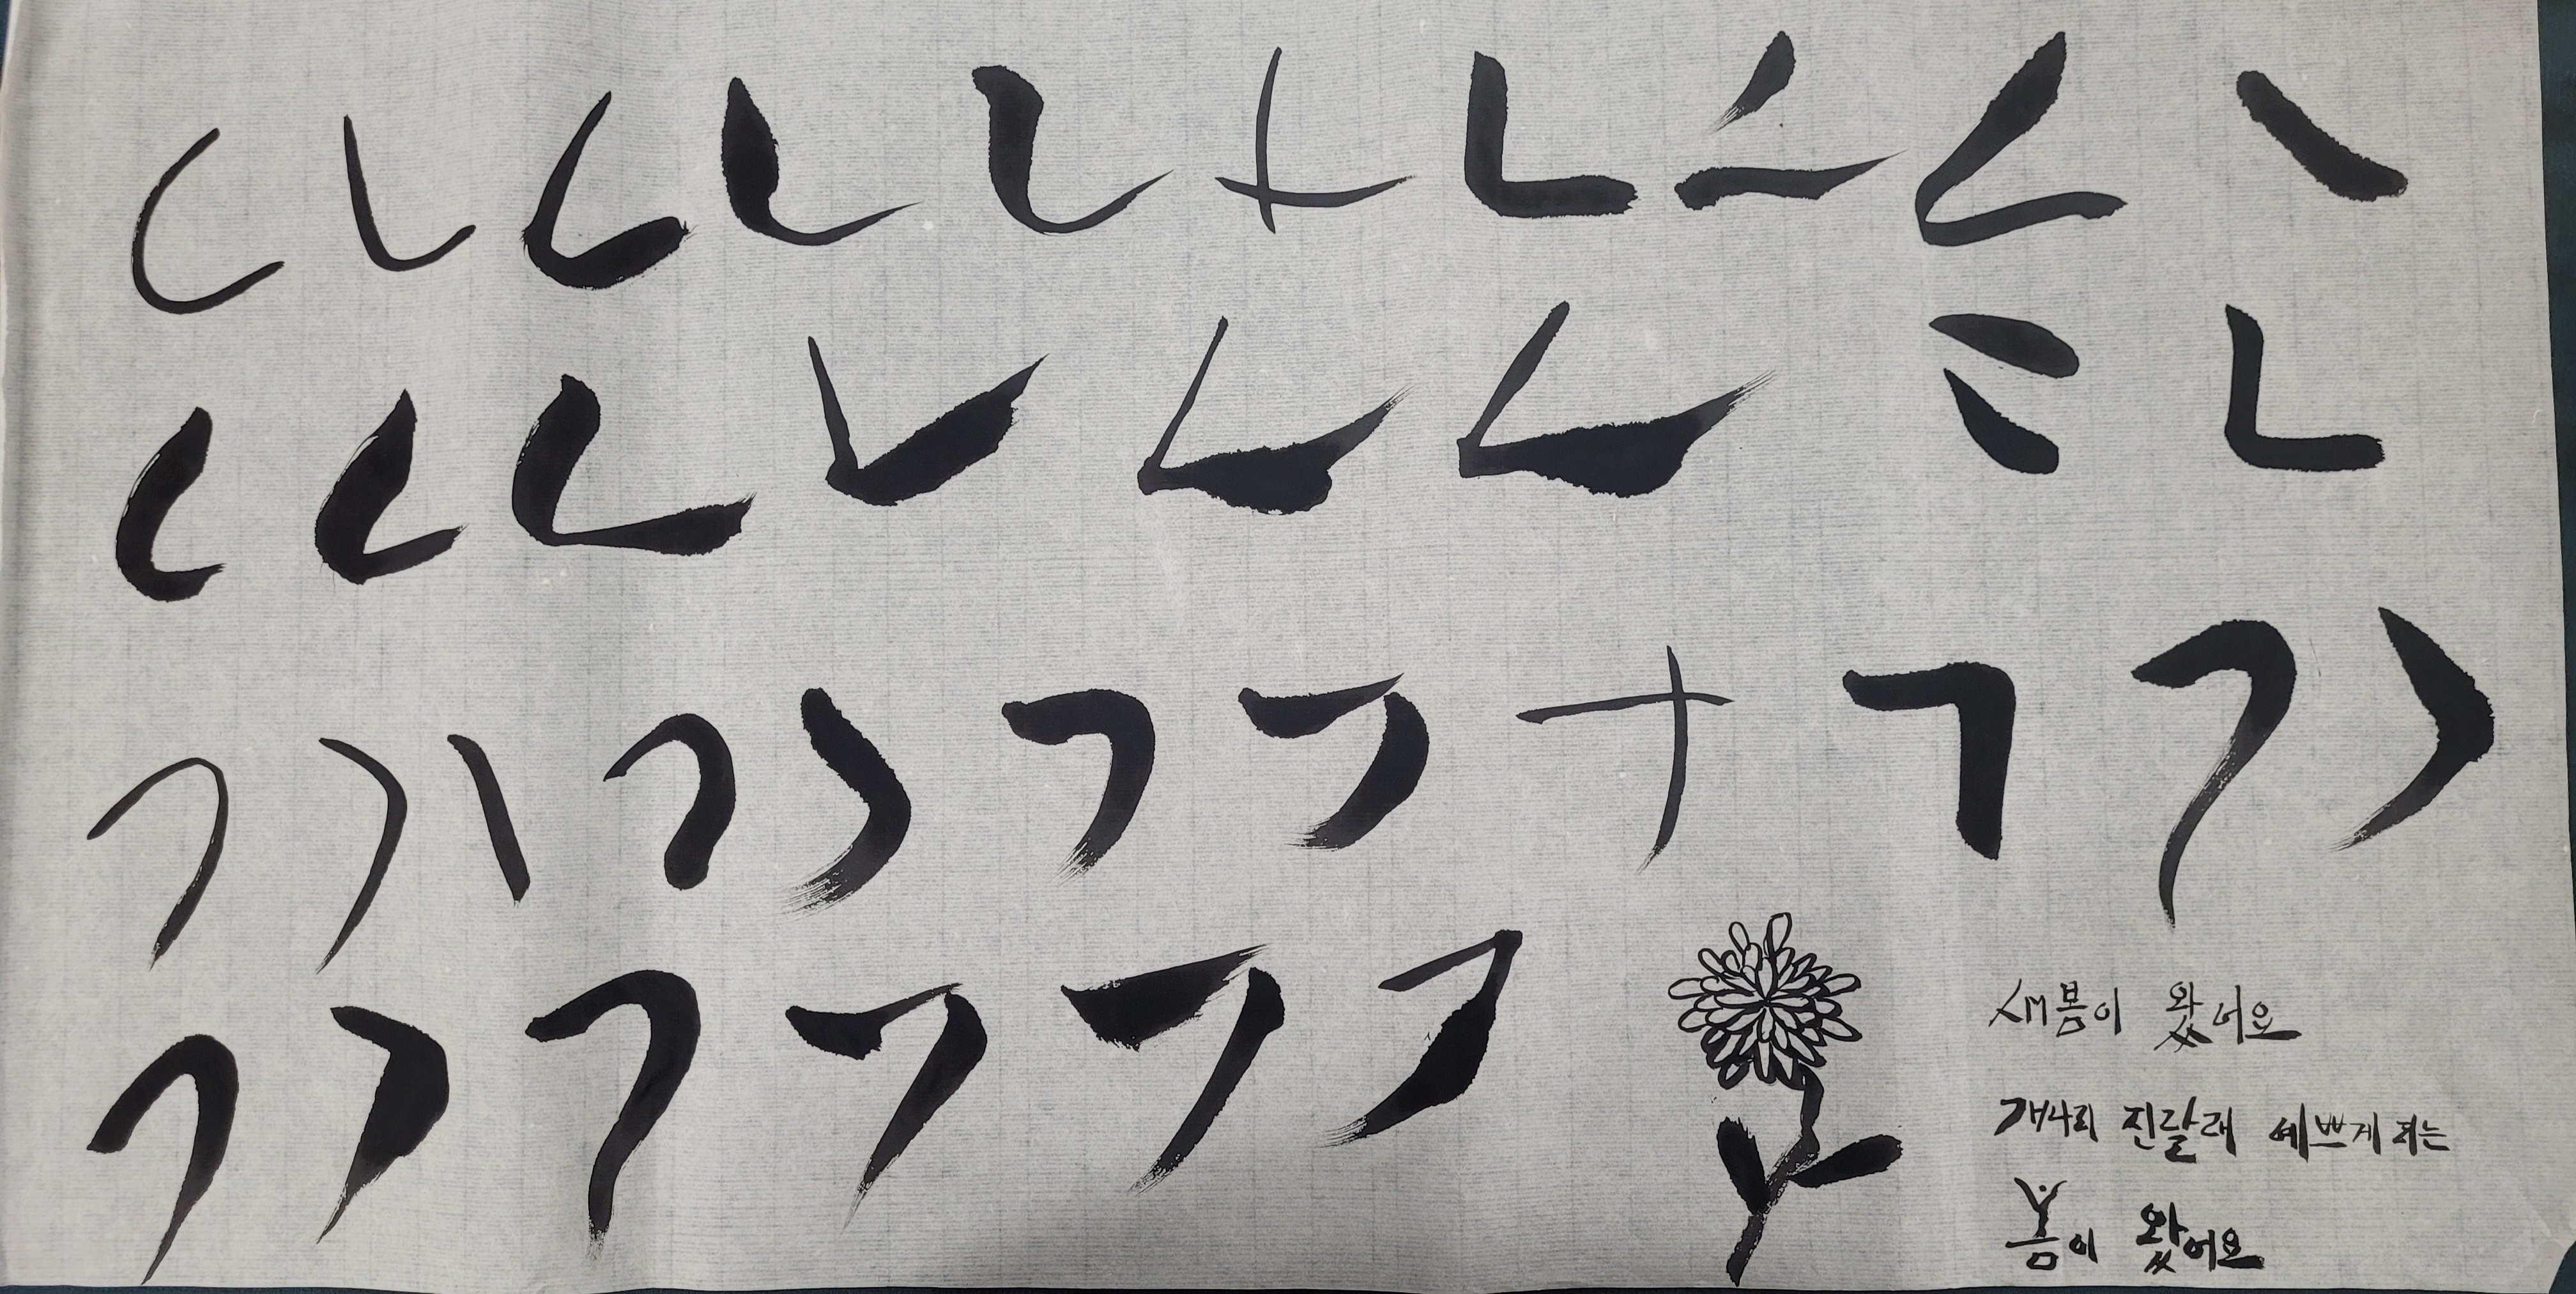 ㄴ ㄴ ㄴ ㄴ ㄴ ㄴ ㄴ ㄴ
ㄴ ㄴ ㄴ ㄴ ㄴ ㄴ ㄴ
ㄱ ㄱ ㄱ ㄱ ㄱ ㄱ ㄱ ㄱ ㄱ
ㄱ ㄱ ㄱ ㄱ ㄱ ㄱ
새봄이 왔어요
개나리 진달래 예쁘게 피는
봄이 왔어요